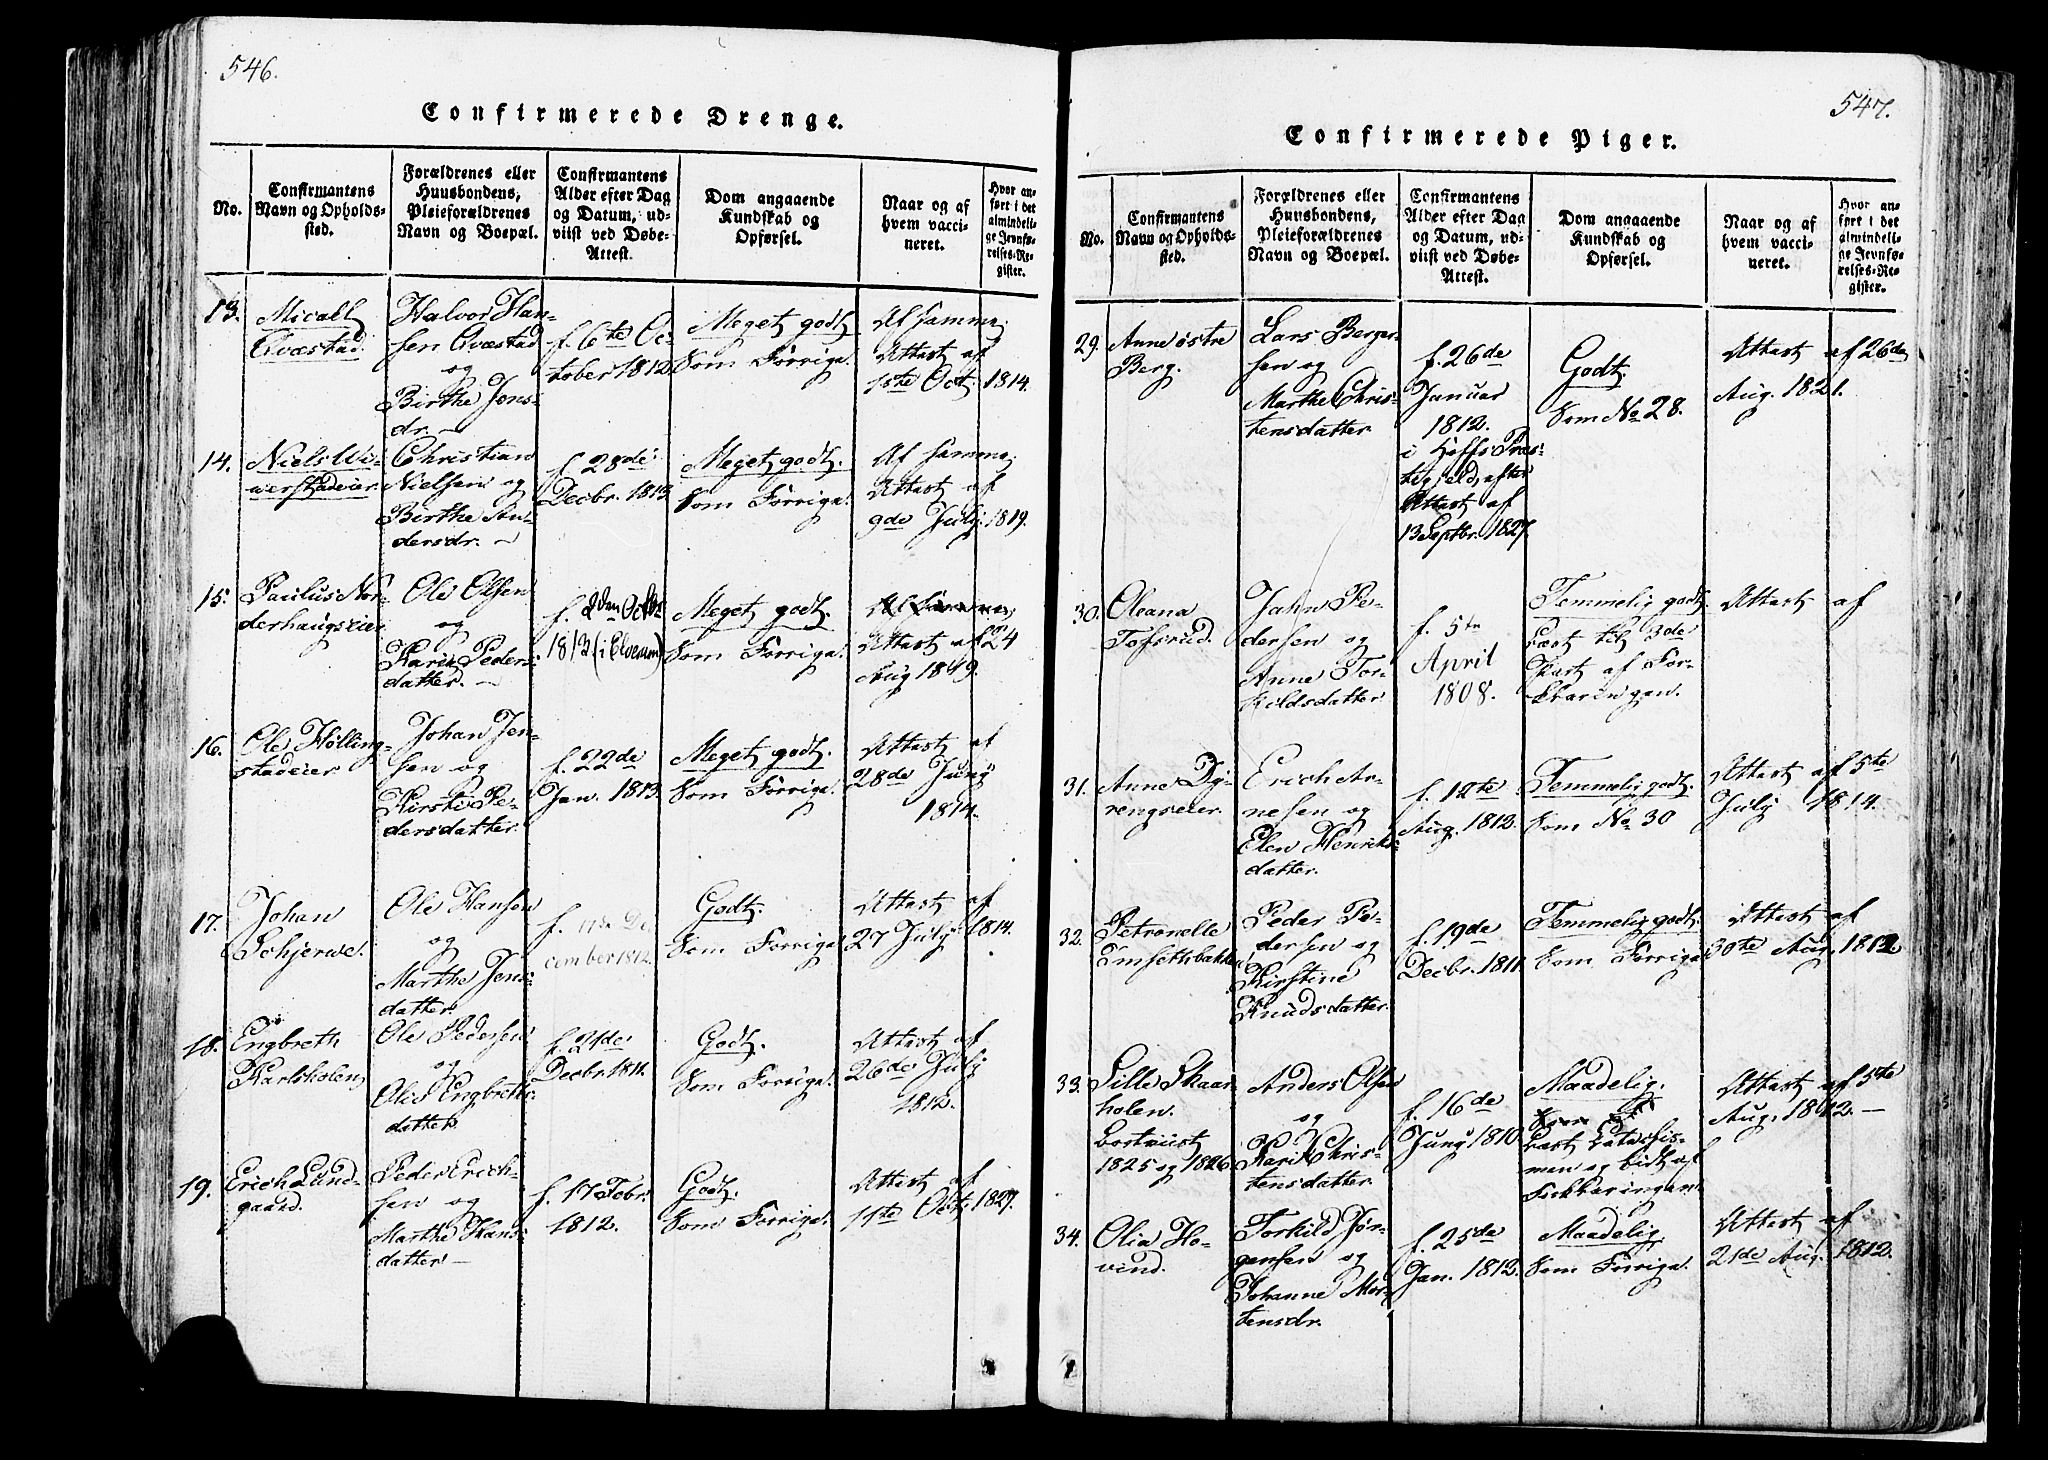 546.
Confirmerede Drenge.
No.
Confirmantens
Navn og Opholds-
sted.
Forældrenes eller
Huusbondens,
Pleieforældrenes
Navn og Boepæl.
Confirmantens
Alder efter Dag
og Datum, ud-
viist ved Døbe-
Attest.
Dom angaaende
Kundskab og
Opførsel.
Naar og af
hvem vacci-
neret.
Hvor an-
ført i det
almindeli-
ge Jevnfø-
relses-Re-
gister.
13.
Micael
Qvæstad.
Halvor Han-
sen Qvæstad
og
Birthe Jens-
dr.
f. 6te Oc-
tober 1812.
Meget godt,
Som Forrige.
Af samme,
Attest af
1ste Oct. 1814.
14.
Niels
Christian
Nielsen og
Birthe An-
dersdr.
f. 28de
Decbr. 1813.
Meget godt.
Som Forrige.
Af samme,
Attest af
9de July 1819.
15.
Paulus Nor-
derhaugseier
Ole Olsen
og
Karen Peders-
datter.
f. 2den Octbr
1813 (i Elverum)
Meget godt,
Som Forrige.
Af samme,
Attest af 24
Aug 1819.
16.
Ole Hølling-
stadeier
Johan Jen-
sen og
Kirstie Pe-
dersdatter.
f. 22de
Jan. 1813.
Meget godt.
Som Forrige.
Attest af
28de Juny
1814.
17.
Johan
Schjerve.
Ole Hansen
og
Marthe Jens-
datter.
f. De
cember 1812.
Godt.
Som Forrige.
Attest af
27 July 1814.
18.
Engbreth
Karlsholen
Ole Pedersen
og
Olea Engbreths-
datter.
f. 21de
Decbr. 1811.
Godt.
Som Forrige.
Attest af
26de July
1812.
19.
Erich Lund-
gaard.
Peder Erich-
sen og
Marthe Hans-
datter
f. 17 Febr.
1812.
Godt.
Som Forrige.
Attest af
11te Octb. 1827.
547.
Confirmerede Piger.
No.
Confirmantens
Navn og Opholds-
sted.
Forældrenes eller
Huusbondens,
Pleieforældrenes
Navn og Boepæl.
Confirmantens
Alder efter Dag
og Datum, ud-
viist ved Døbe-
Attest.
Dom angaaende
Kundskab og
Opførsel.
Naar og af
hvem vacci-
neret.
Hvor an-
ført i det
almindeli-
ge Jevnfø-
relses-Re-
gister.
29.
Anne østre
Berg.
Lars Berger-
sen og
Marthe Chris-
tensdatter.
f. 26de
Januar
1812.
i Hoffs Præs-
tegjeld, efter
Attest af
13 Septbr. 1827.
Godt.
Som No 28.
Attest af 26de
Aug. 1821.
30.
Oleana
Tofsrud.
Jahn Pe-
dersen og
Anne Tor-
kildsdatter
f. 5te
April
1808.
Temmelig godt.
Læst til 3de
Part af For-
klaringen.
Attest af
31.
Anne Dy-
rengseier.
Erich Ar-
nesen og
Elen Henriks-
datter.
f. 12te
Aug. 1812.
Temmelig godt.
Som No 30
Attest af 5te
July 1814.
32.
Petronelle
Emsethbakken
Peder Pe-
dersen og
Kirstine
Knudsdatter.
f. 19de
Decbr. 1811.
Temmelig godt.
Som Forrige
Attest af
30te Aug. 1812.
33.
Lille Skaar
holen.
bortviist
1825 og 1826
Anders Olsen
og
Kari Chris-
tensdatter.
f. 16de
Juny 1810
Maadelig.
Læst Catechis-
men og lidt af
Forklaringen.
Attest af 5te
Aug. 1812.
34.
Olia Ho-
vind.
Torkild Jør-
gensen og
Johanne Mor-
tensdr.
f. 25de
Jan. 1812.
Maadelig.
Som Forrige.
Attest af
21de Aug. 1812.